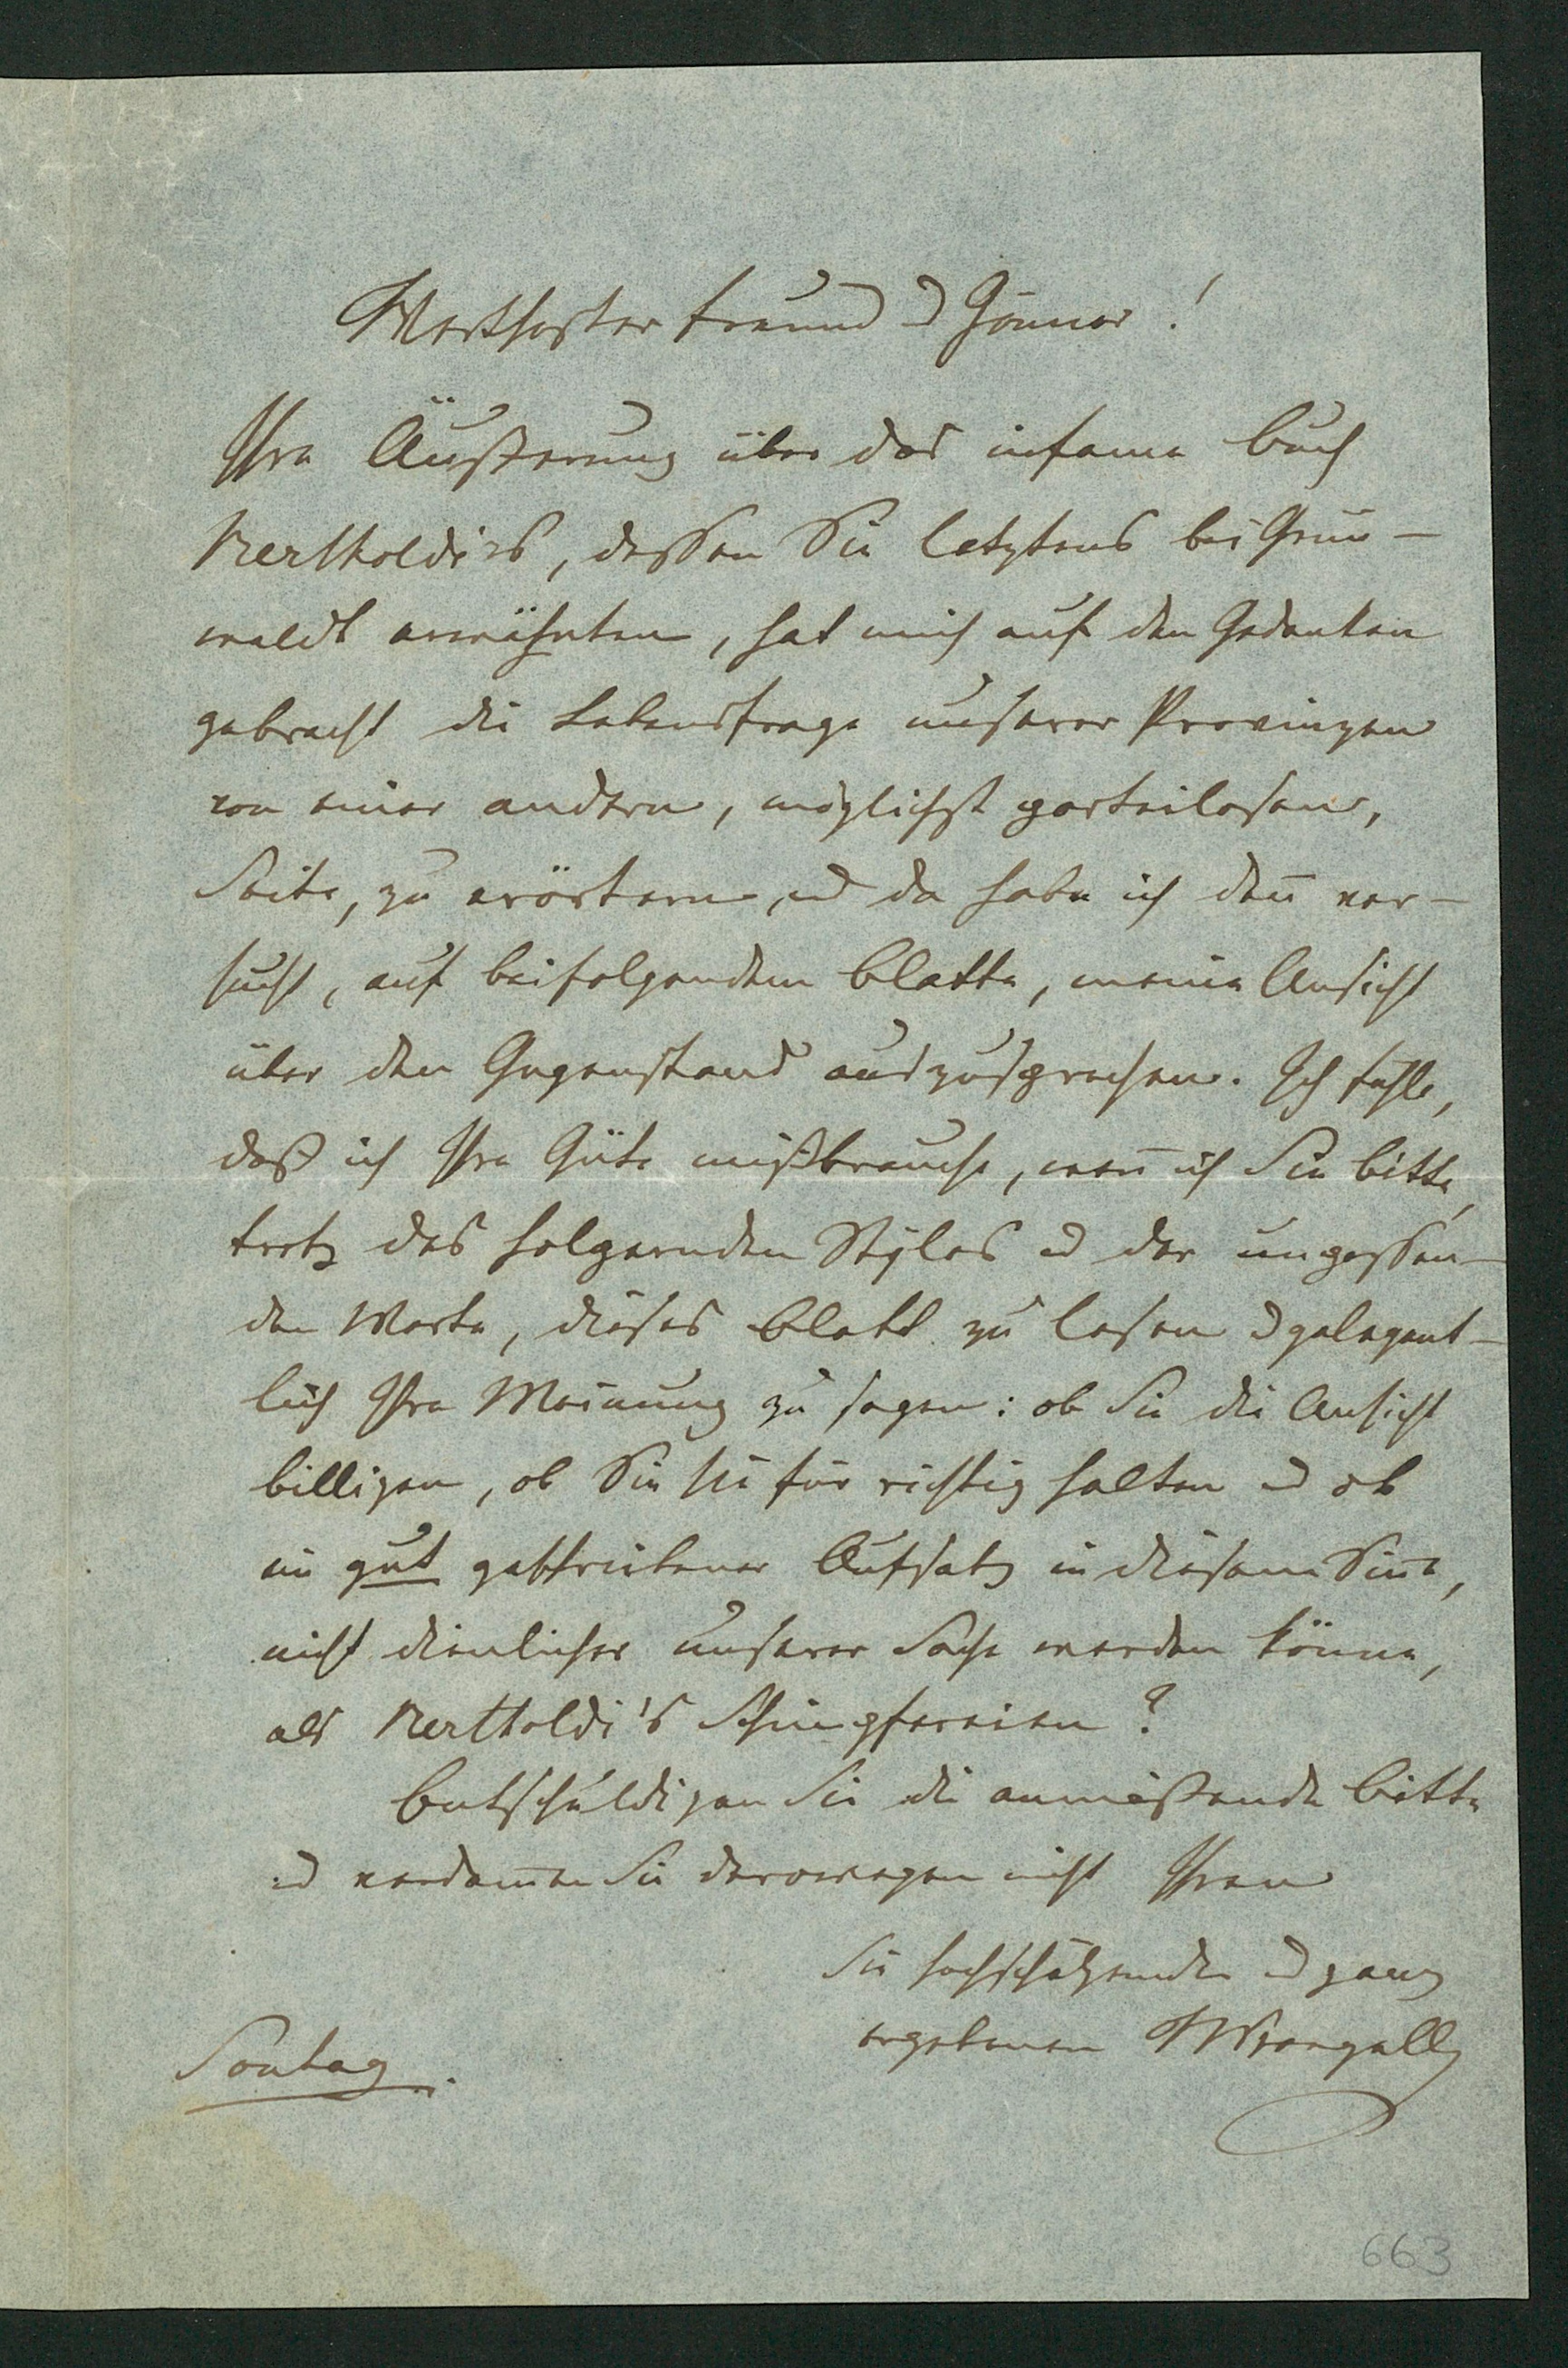 Werthester Freund u Gönner!
Ihre Äußerung über das infame Buch
Bertholdi's, dessen Sie letztens bei Grün-
waldt erwähnten, hat mich auf den Gedanken
gebracht die Lebensfrage unserer Provinzen
von einer andern, möglichst parteilosen,
Seite, zu erörtern, u da habe ich den̄ ver-
sucht, auf beifolgendem Blatte, meine Ansicht
über den Gegenstand auszusprechen. Ich fühle,
daß ich Ihre Güte mißbrauche, wen̄ ich Sie bitte,
trotz des holpernden Styles u der unpassen-
den Worte, dieses Blatt zu lesen u gelegent-
lich Ihre Meinung zu sagen: ob Sie die Ansicht
billigen, ob Sie sie für richtig halten u ob
ein gut geschriebener Aufsatz in diesem Sin̄e,
nicht dienlicher unserer Sache werden könne,
als Bertholdi's Schimpfereien?
Entschuldigen Sie die anmaßende Bitte
u verdam̄en Sie derowegen nicht Ihren
Sie hochschätzenden u ganz
ergebenen Wrangell
Sontag.
663